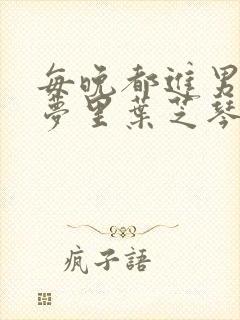 每晚都進男
夢里葉芝琴
瘋子語